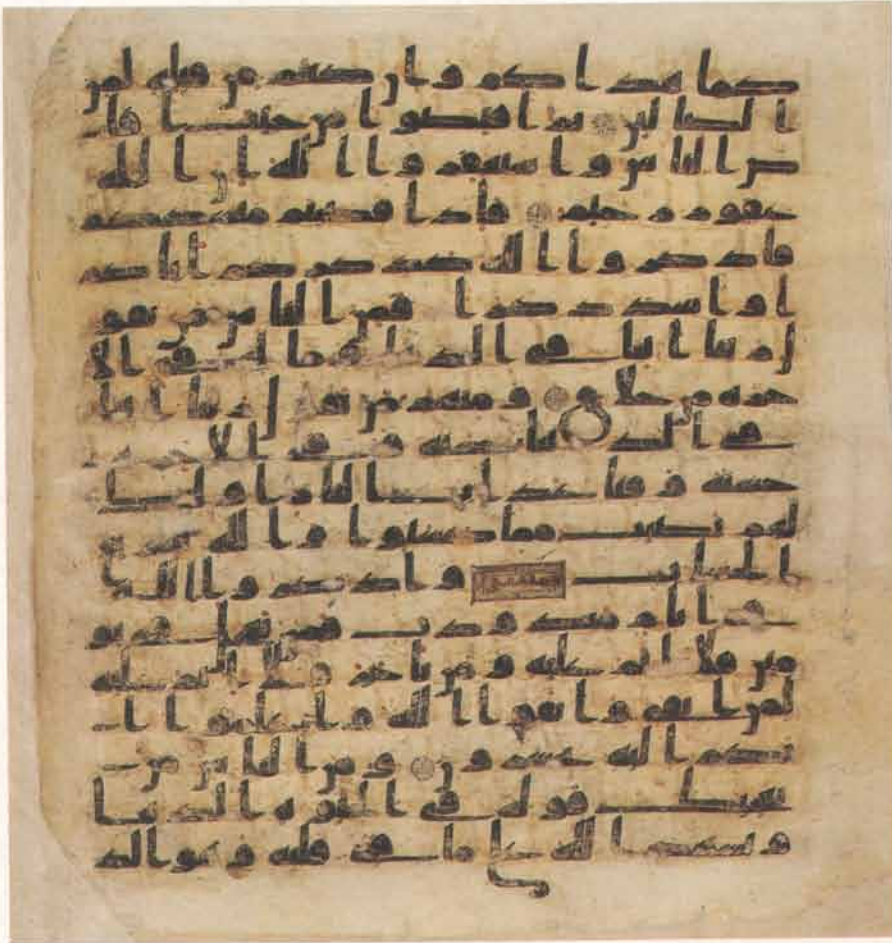 كما هدىكم وان كنتم من قبله لمن
الضالين ثم افيضوا من حيث افا
ض الناس واستغفروا الله ان الله
غفور رحيم فاذا قضيتم منسككم
فاذكروا الله كذكركم اباكم
او اشد ذكرا فمن الناس من يقو
ل ربنا اتنا في الدنيا وما له في الا
خرة من خلاق ومنهم من يقول ربنا اتنا
في الدنيا حسنة وفي الاخرة
حسنة وقنا عذاب النار اوليك
لهم نصيب مما كسبوا والله سريع
الحساب واذكروا الله
في ايام معدودت فمن تعجل في يو
مين فلا اثم عليه ومن تاخر فلا اثم عليه
لمن اتقى واتقوا الله واعلموا ا
نكم اليه تحشرون ومن الناس من
يعجبك قوله في الحيوة الدنيا
ويشهد الله على ما في قلبه وهو الد